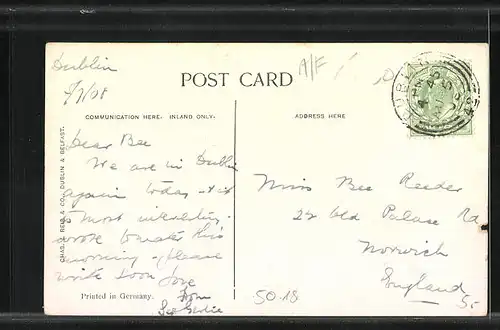 Dublin
5/7/08
POST CARD
A/F
COMMUNICATION HERE. INLAND ONLY.
ADDRESS HERE
Dear Bee
We are in Dublin
again today & it
is most interesting.
wrote to mater this
morning - please
write soon love
from
CHAS. L. REIS & CO., DUBLIN & BELFAST.
Miss Bee Reeder
22 Old Palace Rd
Norwich
England
Printed in Germany.
50.18